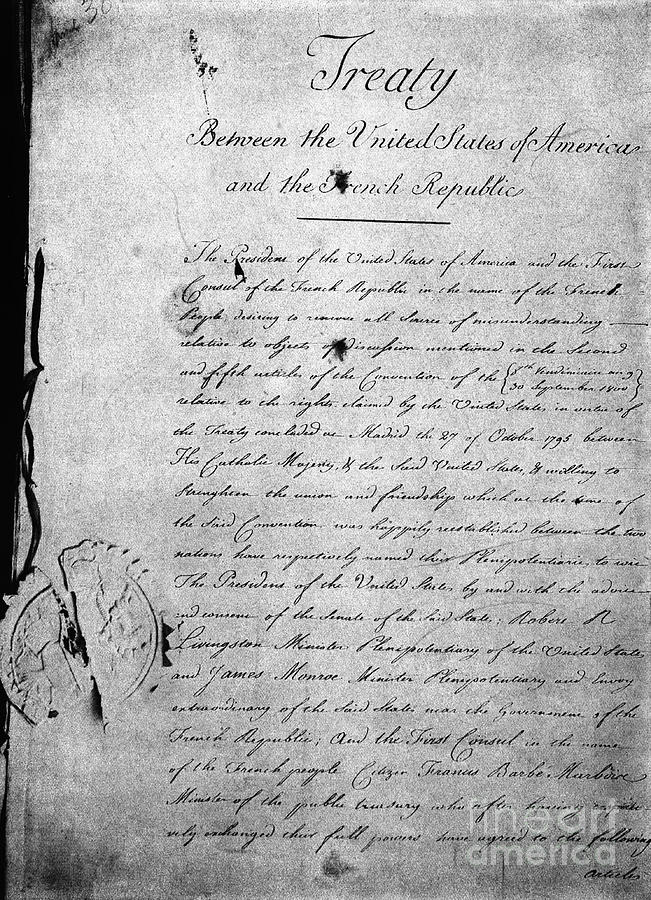 Treaty
Between the United States of America
and the French Republic
The President of the United States of America and the First
Consul of the French Republic in the name of the French
People desiring to remove all Source of misunderstanding
relative to objects of discussion mentioned in the Second
and fifth articles of the Convention of the {8th Vendémiaire an 9
30 September 1800}
relative to the rights claimed by the United States in virtue of
the Treaty concluded at Madrid the 27 of October 1795 between
His Catholic Majesty, & the Said United States, & willing to
Strengthen the union and friendship which at the time of
the Said Convention was happily reestablished between the two
nations have respectively named their Plenipotentiaries to wit
The President of the United States by and with the advice
and consent of the Senate of the Said States; Robert R
Livingston Minister Plenipotentiary of the United States
and James Monroe Minister Plenipotentiary and Envoy
extraordinary of the Said States near the Government of the
French Republic; And the First Consul in the name
of the French people Citizen Francis Barbé Marbois
Minister of the public treasury who after having
vely exchanged their full powers have agreed to the following
articles
fineart
america